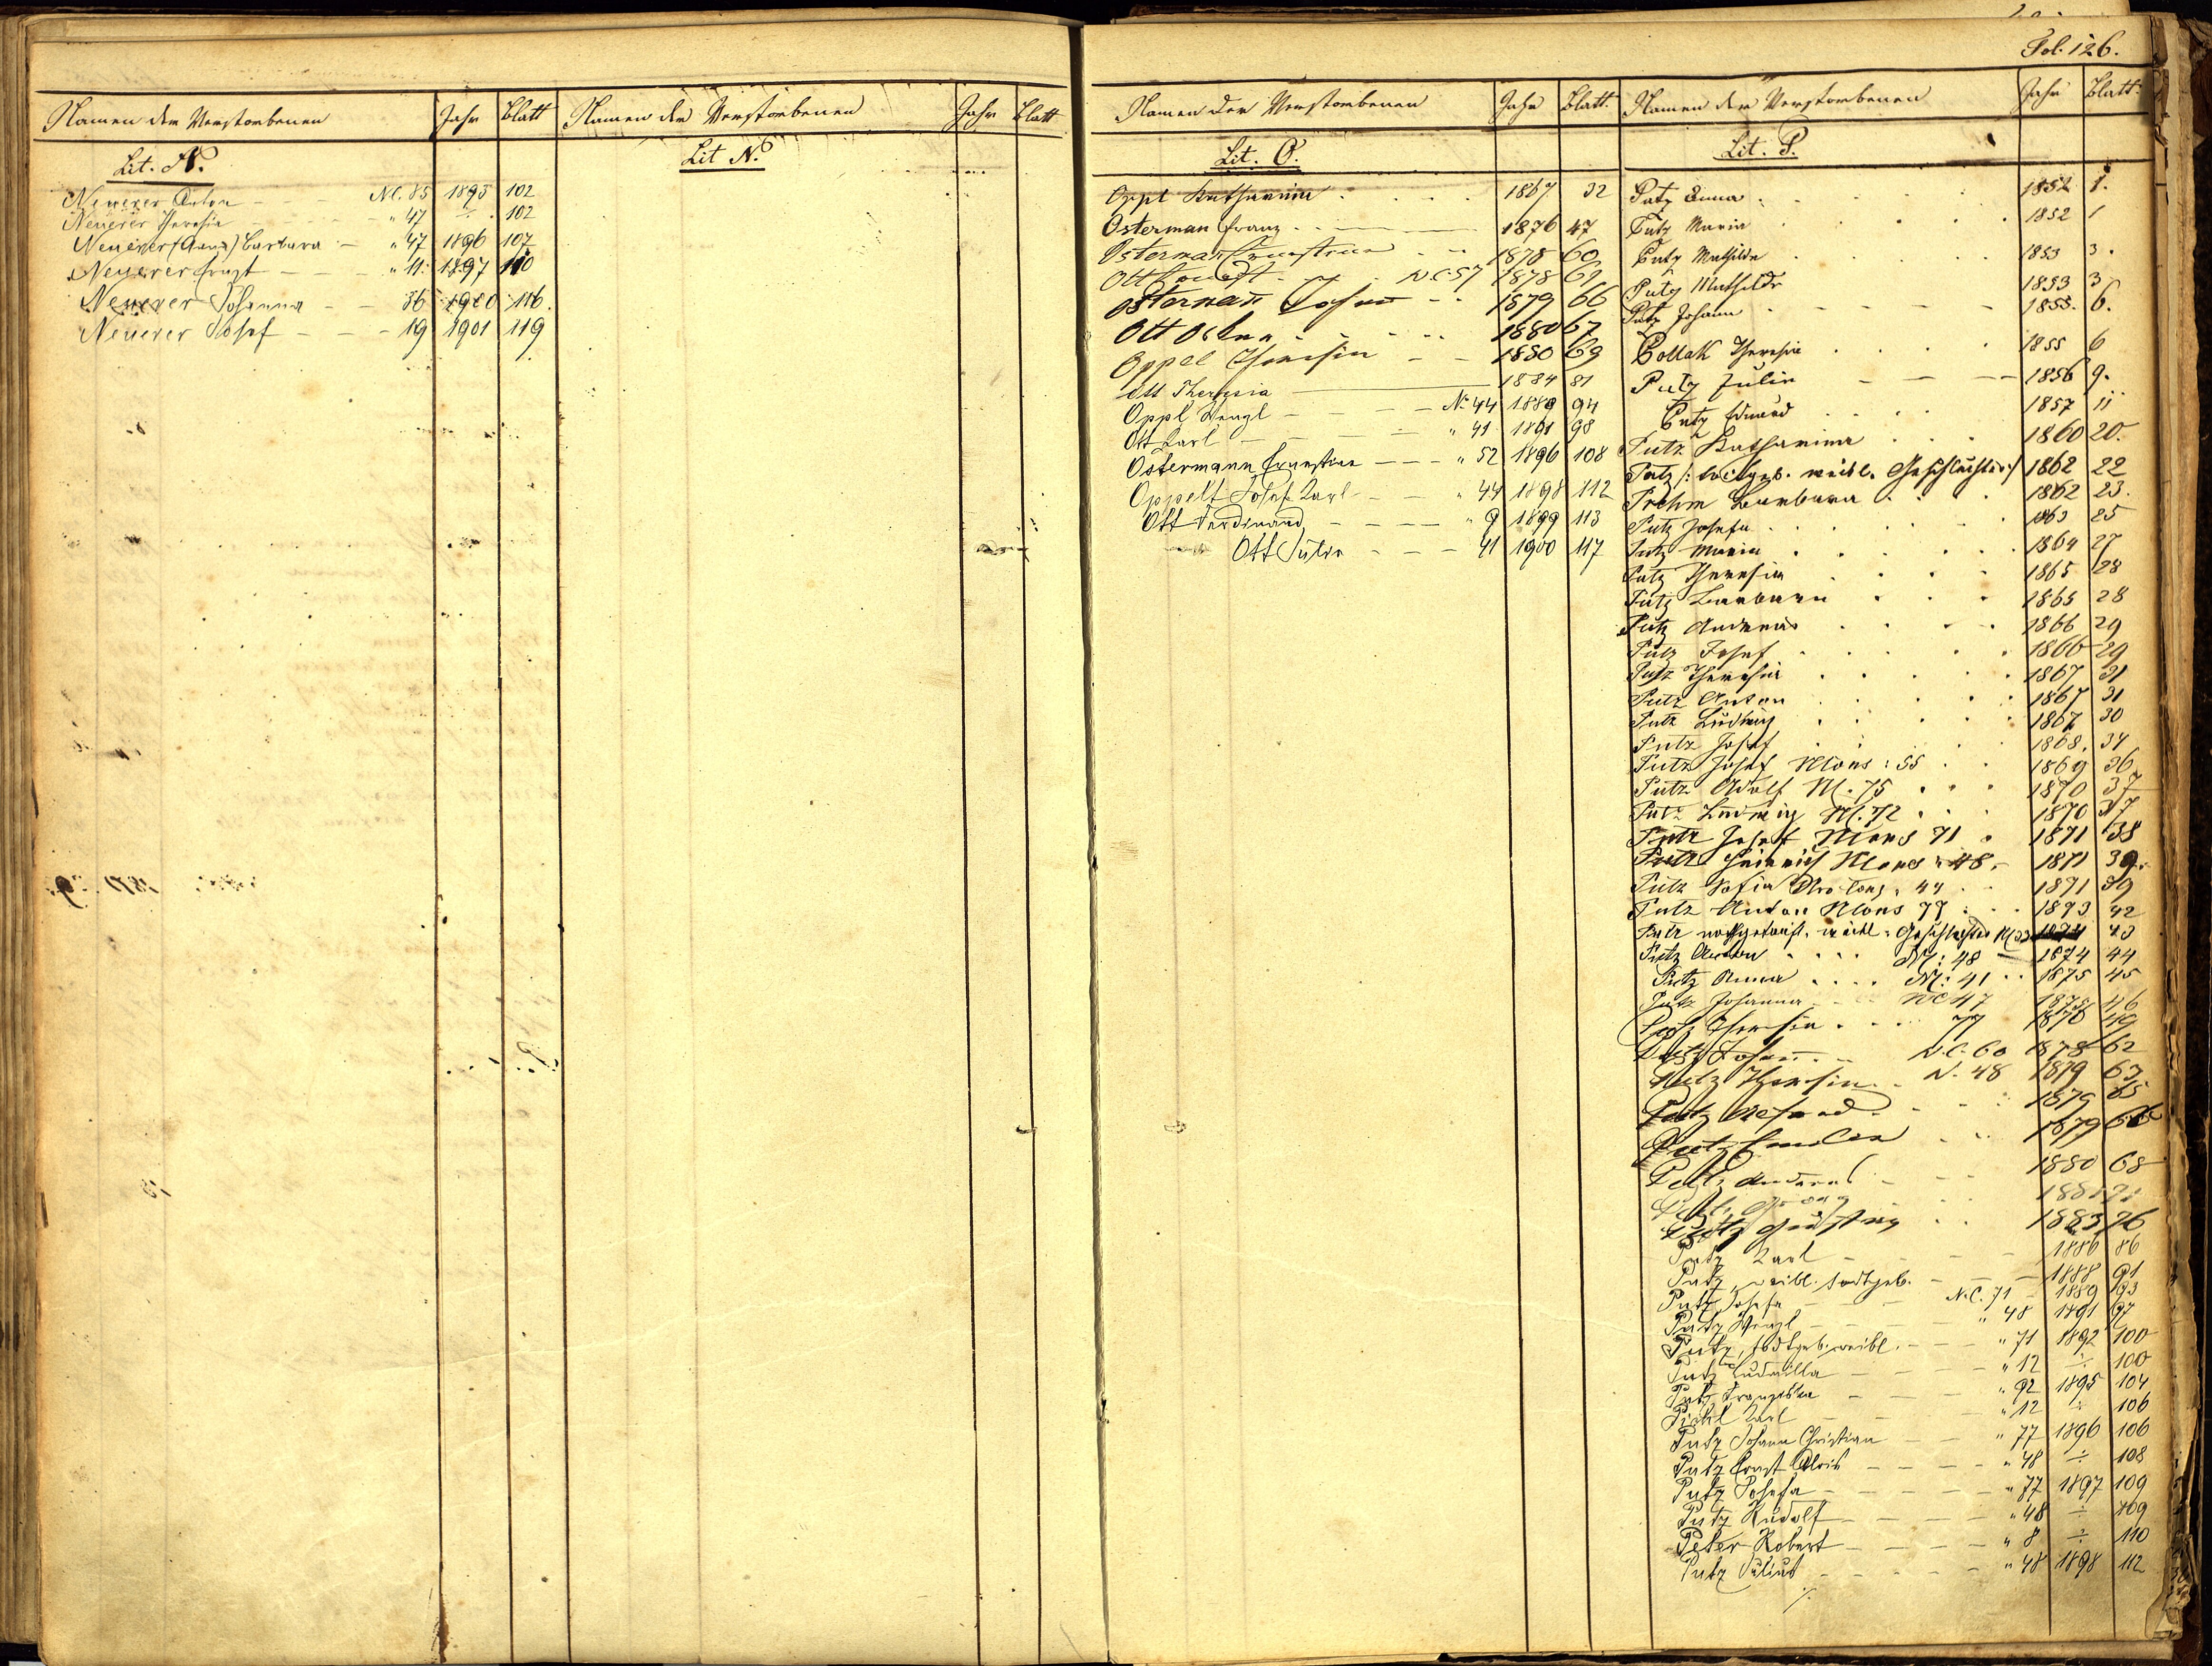 Fol. 126.
Namen der Verstorbenen Jahr Blatt Namen der Verstorbenen Jahr Blatt
Lit. N. Lit N.
Neuerer Anton N.C. 85 1895 102
Neuerer Theresia " 47 ÷ 102
Neuerer Barbara " 47 1896 107
Neuerer Ernst " 11 1897 110
Neuerer Johanna 36 1900 116.
Neuerer Josef 19 1901 119
Namen der Verstorbenen Jahr Blatt.
Lit. O.
Oppl Katharina 1867 32
Osterman Franz 1876 47
Osterman Ernestine 1878 60
Ott N.C. 57 1878 61
Osterman Johann 1879 66
Ott 1880 67
Oppel Theresia 1880 69
Ott Theresia 1884 81
Oppl Wenzl No 44 1889 94
Ott Karl " 41 1891 98
Ostermann Ernestine " 52 1896 108
Oppelt Josef Karl " 44 1898 112
Ott Ferdinand " 9 1899 113
Ott Julie 41 1900 117
Namen der Verstorbenen Jahr Blatt.
Lit. P.
Putz Anna 1852 1.
Putz Maria 1852 1
Putz Mathilde 1853 3.
Putz Mathilde 1853 3
Putz Johann 1855. 6.
Pollak Theresia 1855 6
Putz Julie 1856 9.
Putz Eduard 1857 11
Putz Katharina 1860 20.
Putz /: todtgeb. weibl. Geschlechtes :/ 1862 22
Barbara 1862 23.
Putz Josefa 1863 25
Putz Maria 1864 27
Putz Theresia 1865 28
Putz Barbara 1865 28
Putz Andreas 1866 29
Putz Josef 1866 29
Putz Theresia 1867 31
Putz Anton 1867 31
Putz Ludwig 1867 30
Putz Josef 1868. 34
Putz Josef NCons: 55 1869 36
Putz Adolf N. 75 1870 37
Putz Ludwig N. 72 1870 37
Putz Josef NCons 71 1871 38
Putz Heinrich NCons 48. 1871 39.
Putz Sofia 44 1871 39
Putz Anton NCons 77 1873 42
Putz nothgetauft. weibl. Geschlechtes 43
Putz Anton N: 48 1874 44
Putz Anna N: 41 1875 45
Putz Johanna NC 47 1875 46
Putz Theresia 77 1876 49
Putz Johann N.C. 60 1878 62
Putz Theresia N. 48 1879 63
Putz 1879 65
Putz Emilie 1879 66
Putz Andreas 1880 68
Putz
Putz Gustav 1883 76
Putz Karl 1886 86
Putz, weibl. todtgeb. 1888 91
Putz Josefa N.C. 71 1889 93
Putz Wenzl " 48 1891 97
Putz, todtgeb. weibl. " 71 1892 100
Putz Ludmilla " 12 ÷ 100
Putz Franziska " 92 1895 104
Karl " 12 ÷ 106
Putz Johann Christian " 77 1896 106
Putz Ernst Alois " 48 ÷ 108
Putz Josefa " 77 1897 109
Putz Rudolf " 48 ÷ 109
Peter Robert " 8 ÷ 110
Putz Julius " 48 1898 112